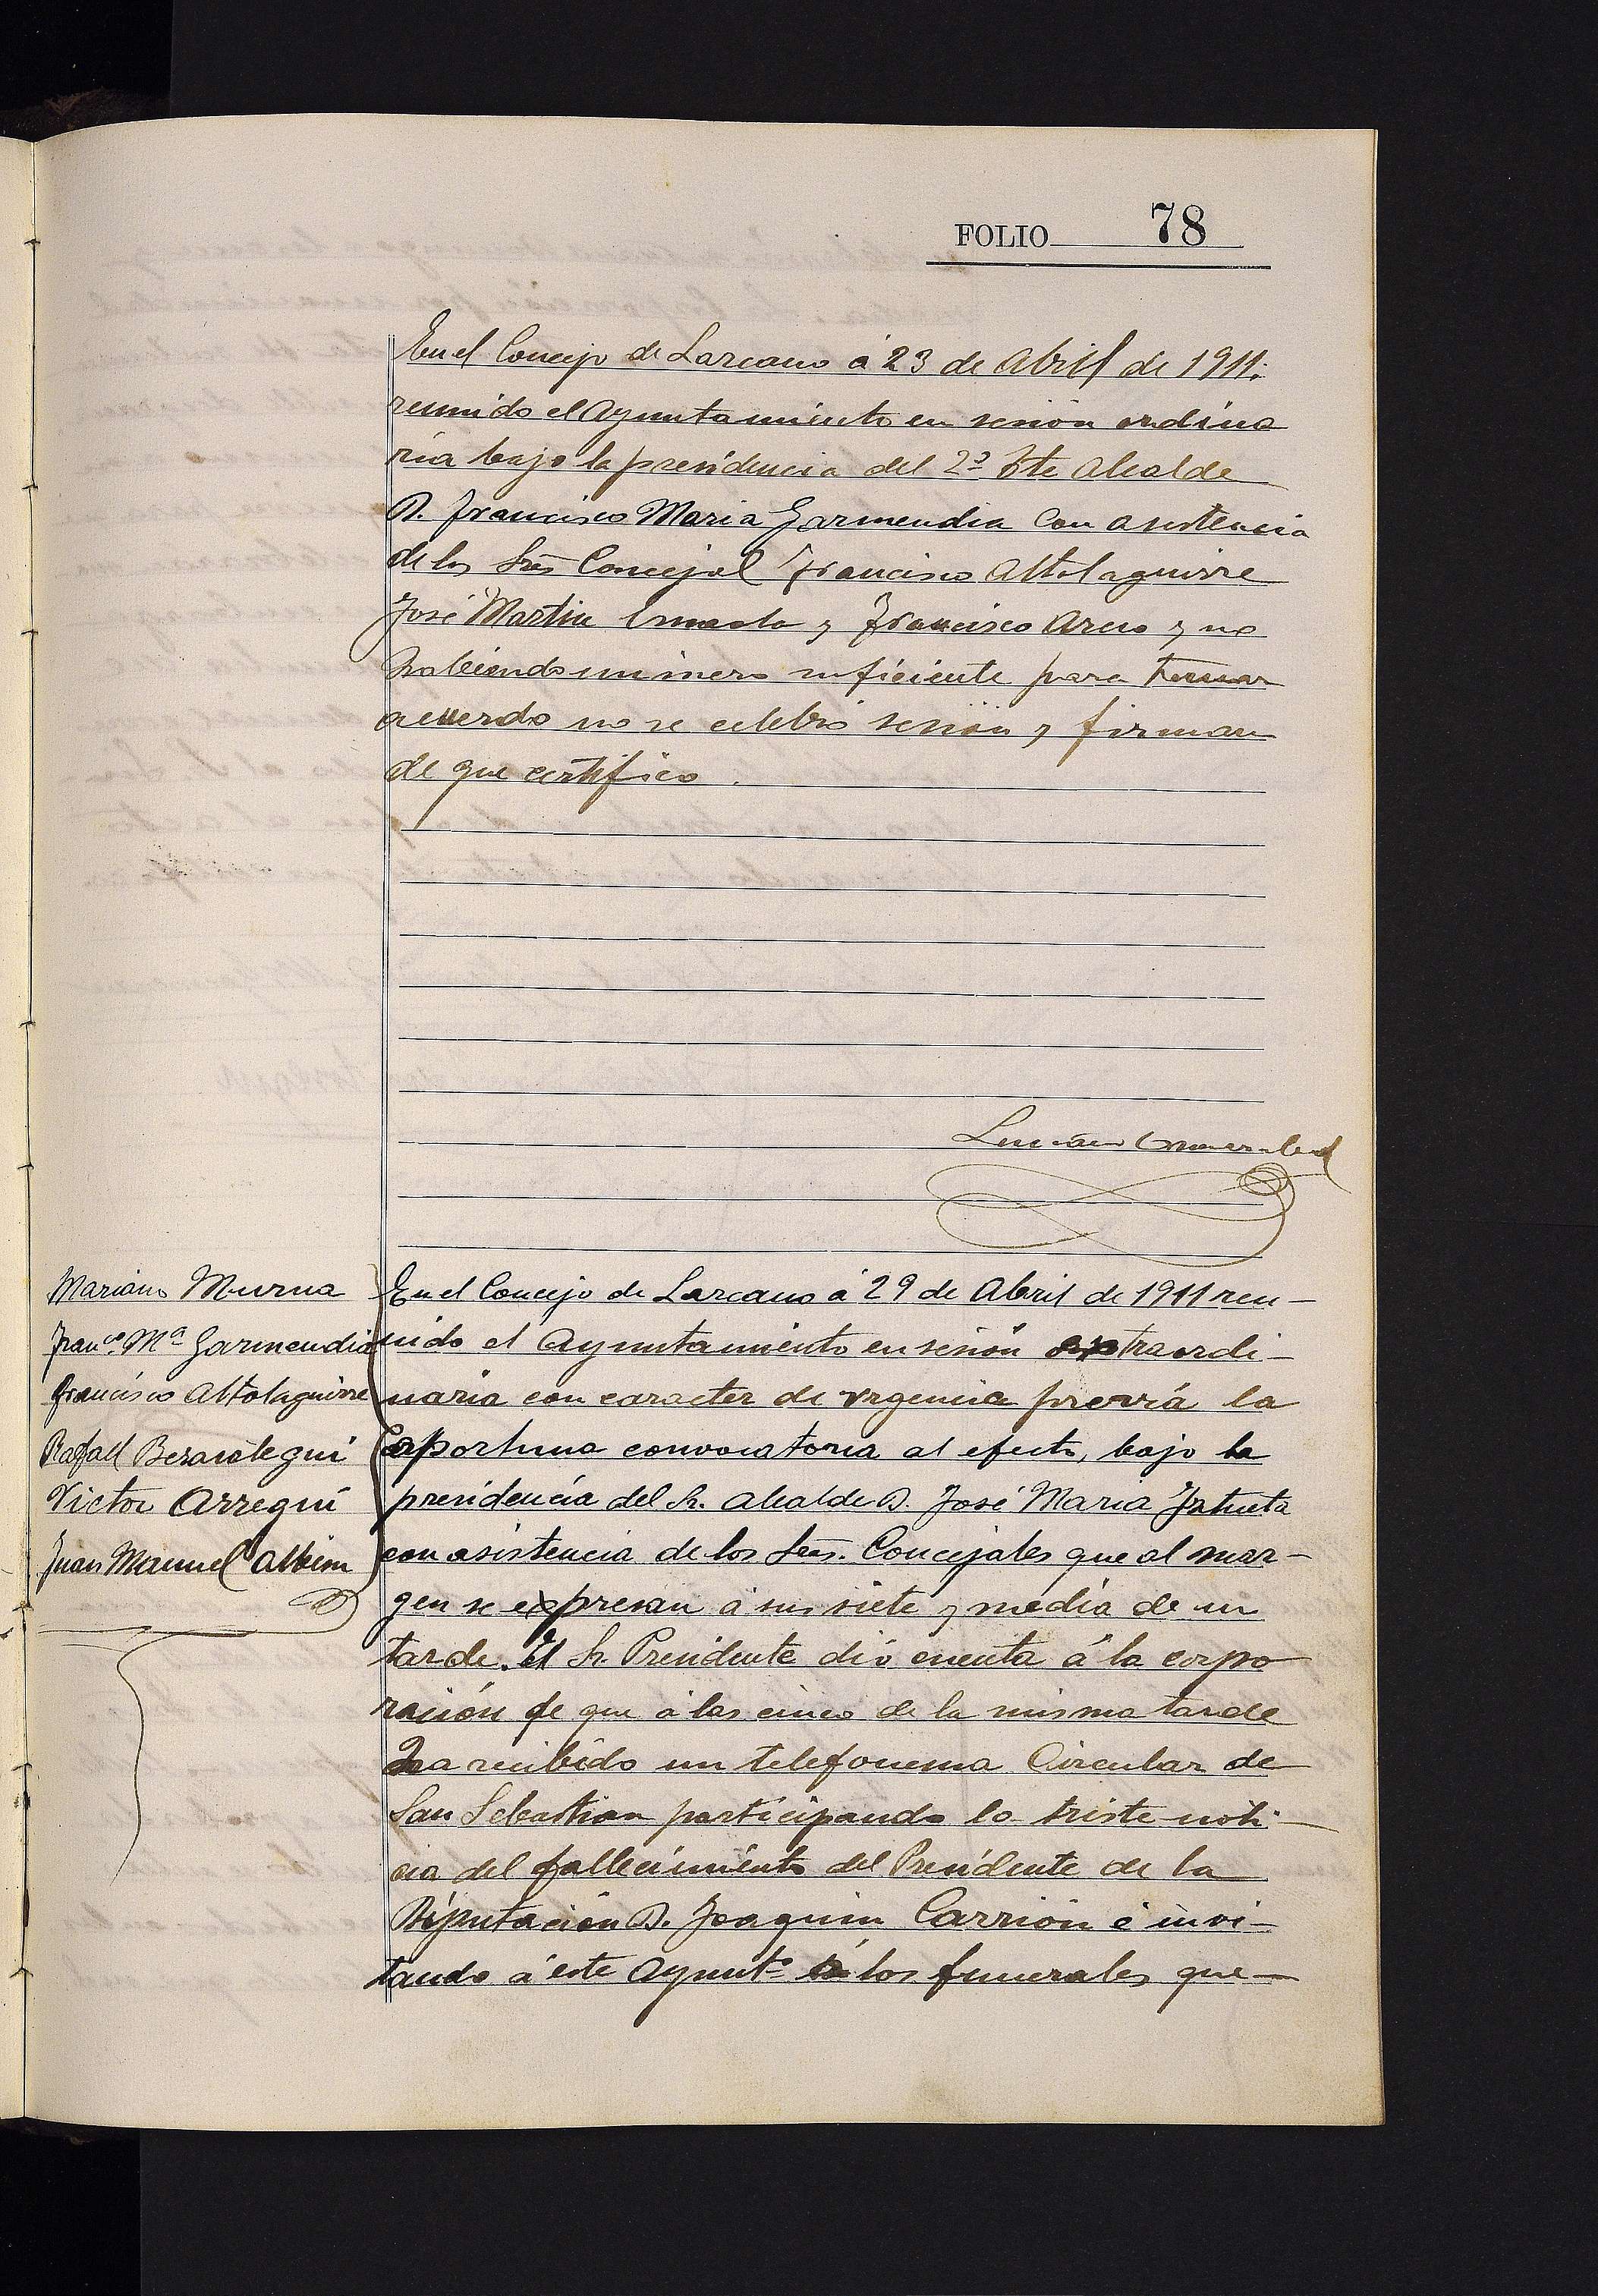 FOLIO 78
En el Concejo de Lazcano á 23 de Abril de 1911.
reunido el Ayuntamiento en sesion ordina
ria bajo la presidencia del 2º Tte Alcalde
D. Francisco Maria Garmendia con asistencia
de los Sres Concejal Francisco Altolaguirre
José Martin y Francisco y no
habiendo número suficiente para tomar
acuerdo no se celebró sesión y firman
de que certifico.
Luciano
Mariano Murua
Franco. Mª Garmendia
Francisco Altolaguirre
Rafael Berasategui
Victor Arregui
Juan Manuel
En el Concejo de Lazcano á 29 de Abril de 1911 reu-
nido el Ayuntamiento en sesión extraordi-
naria con caracter de urgencia previa la
oportuna convocatoria al efecto, bajo la
presidencia del Sr. Alcalde D. José Maria
con asistencia de los Sres. Concejales que al mar-
gen se expresan á sus siete y media de su
tarde. El Sr. Presidente dió cuenta á la corpo
ración de que á las cinco de la misma tarde
ha recibido un telefonema Circular de
San Sebastian participando la triste noti-
cia del fallecimiento del Presidente de la
Diputación D. Joaquin Carrión é invi-
tando á este Ayuntº á los funerales que